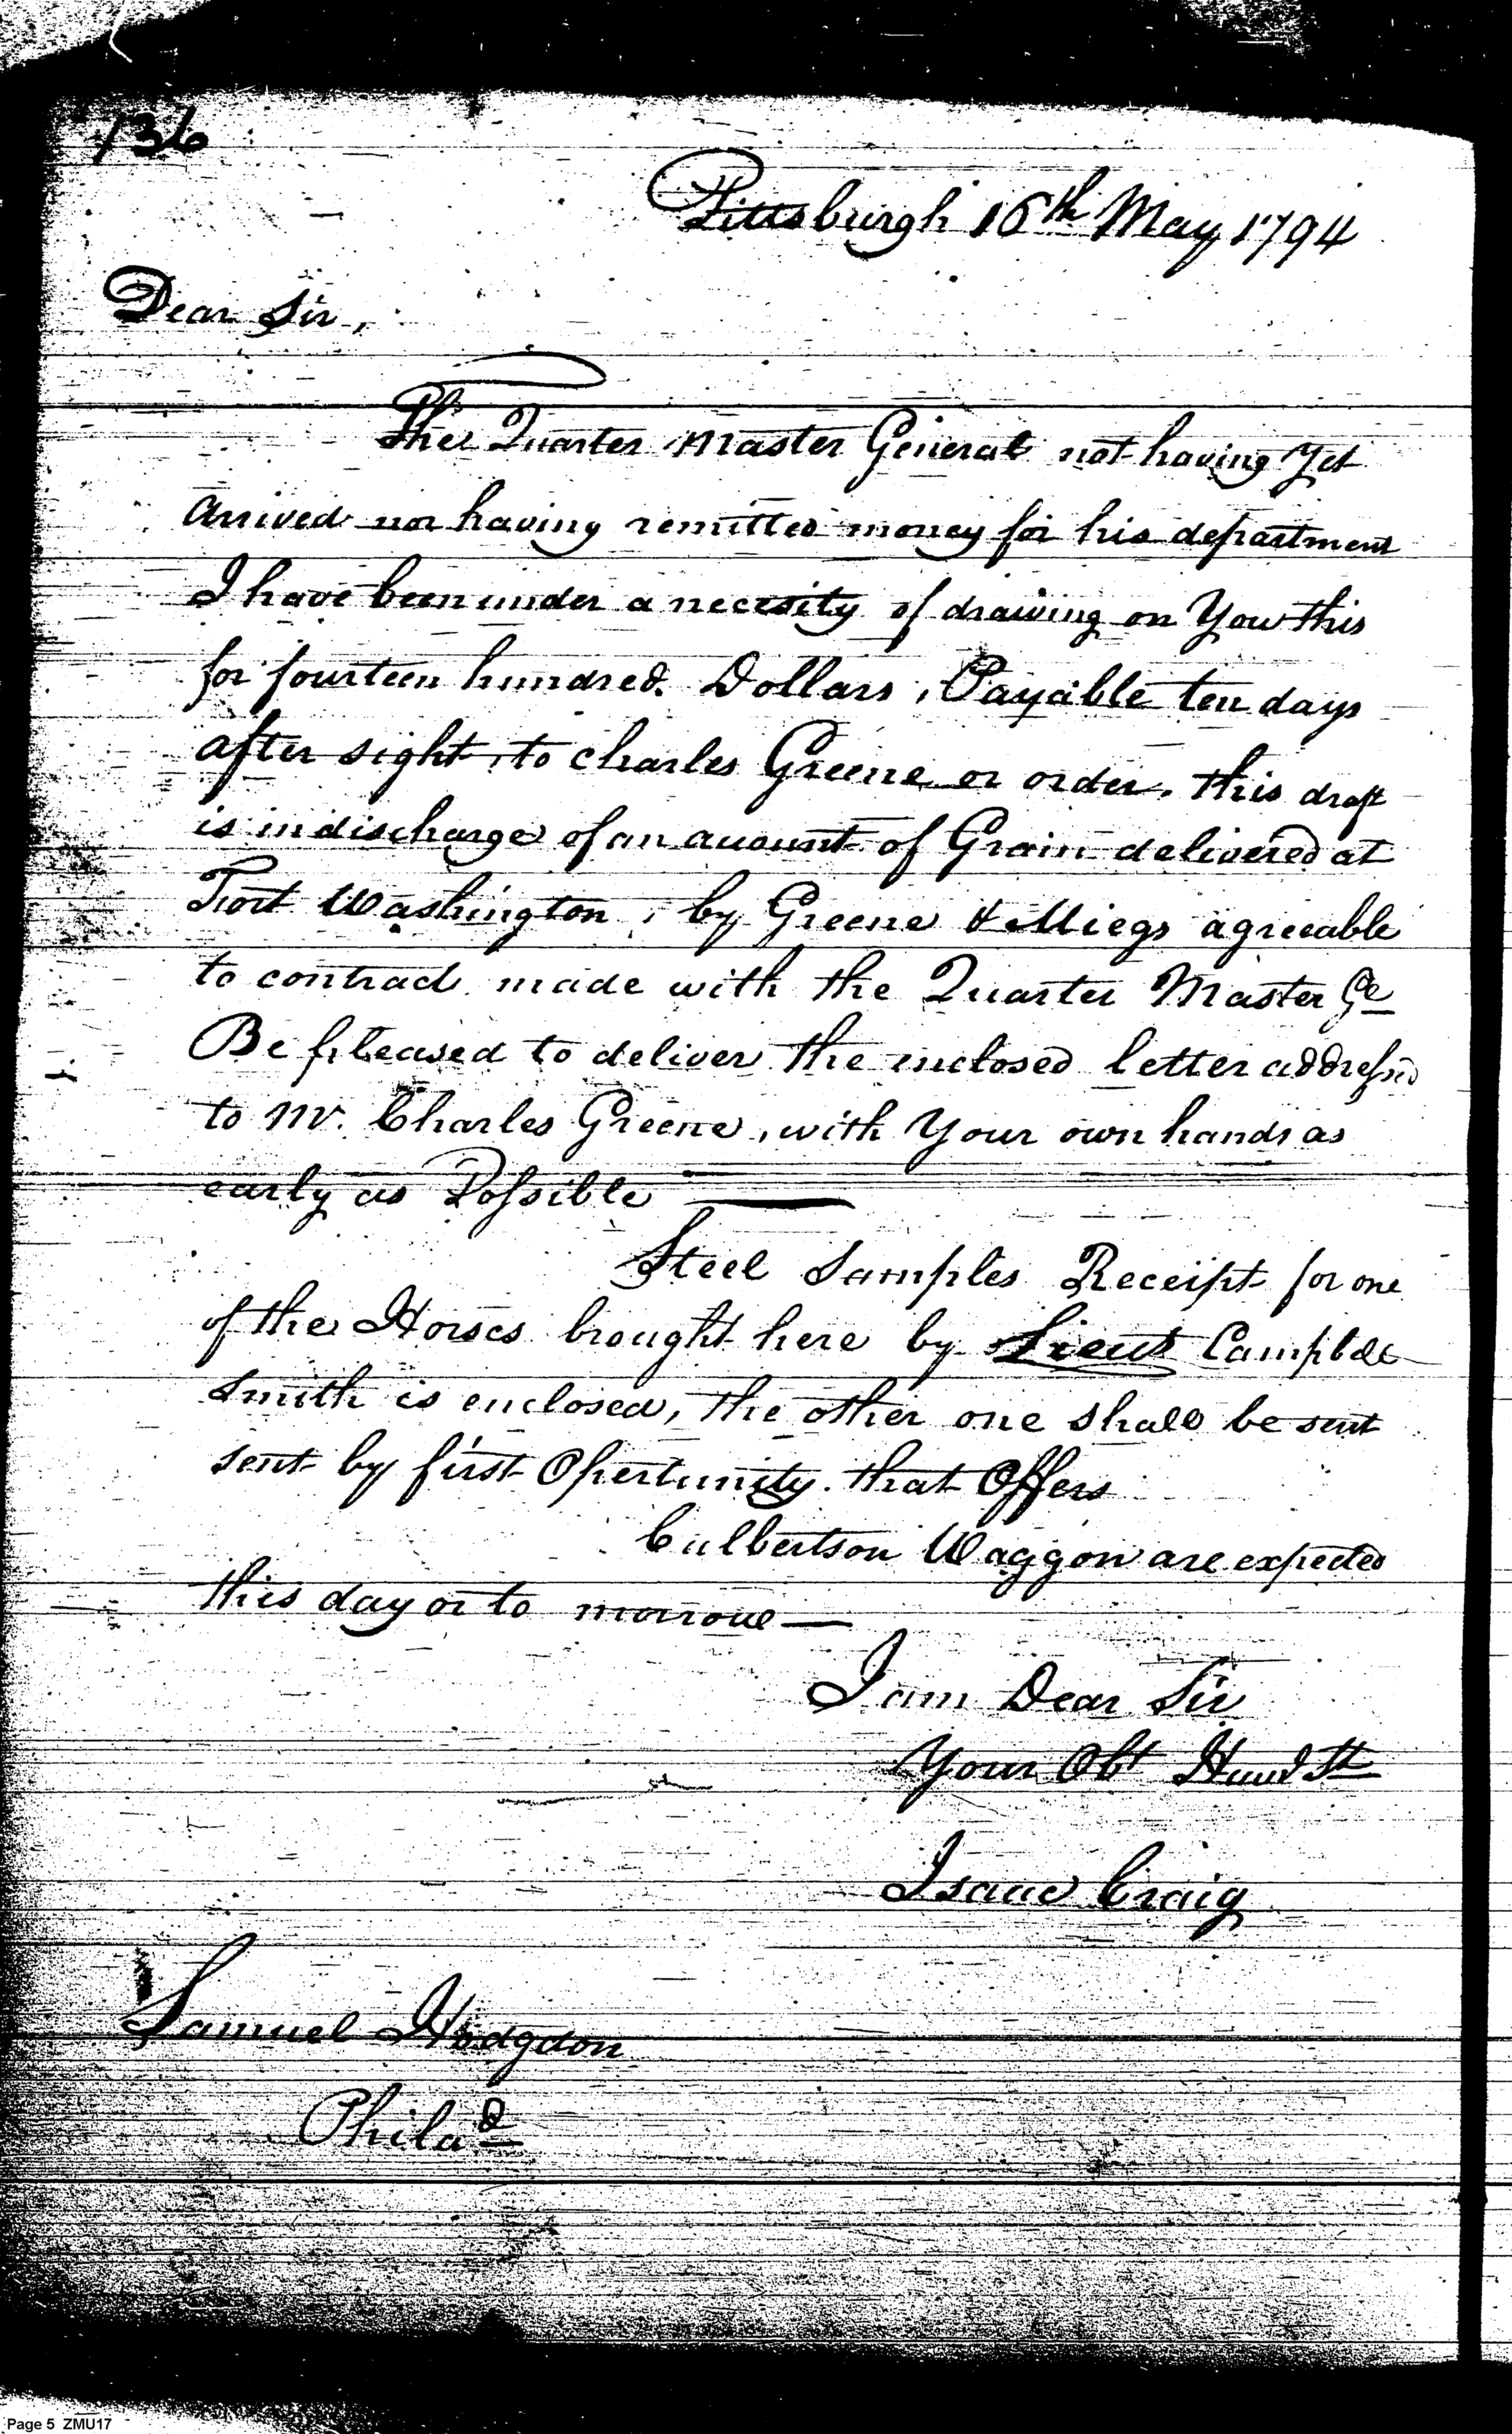 136
Pittsburgh 16th May 1794
Dear Sir,
The Quarter Master General not having Yet
arrived nor having remitted money for his department
I have been under a necesity of drawing on You this
for fourteen hundred Dollars, Payable ten days
after sight, to Charles Greene or order. this draft
is in discharge of an account of Grain delivered at
Fort Washington, by Greene & Miegs agreeable
to contract made with the Quarter Master Ge
Be pleased to deliver the enclosed letter addressed
to Mr. Charles Greene, with Your own hands as
early as Possible —
Steel Samples Receipt for one
of the Horses brought here by Lieut Campbell
Smith is enclosed, the other one shall be sent
sent by first Opertunity that Offers
Culbertson Waggon are expected
this day or to morrow —
I am Dear Sir
Your Obt Humb St
Isaac Craig
Samuel Hodgdon
Philad
Page 5 ZMU17